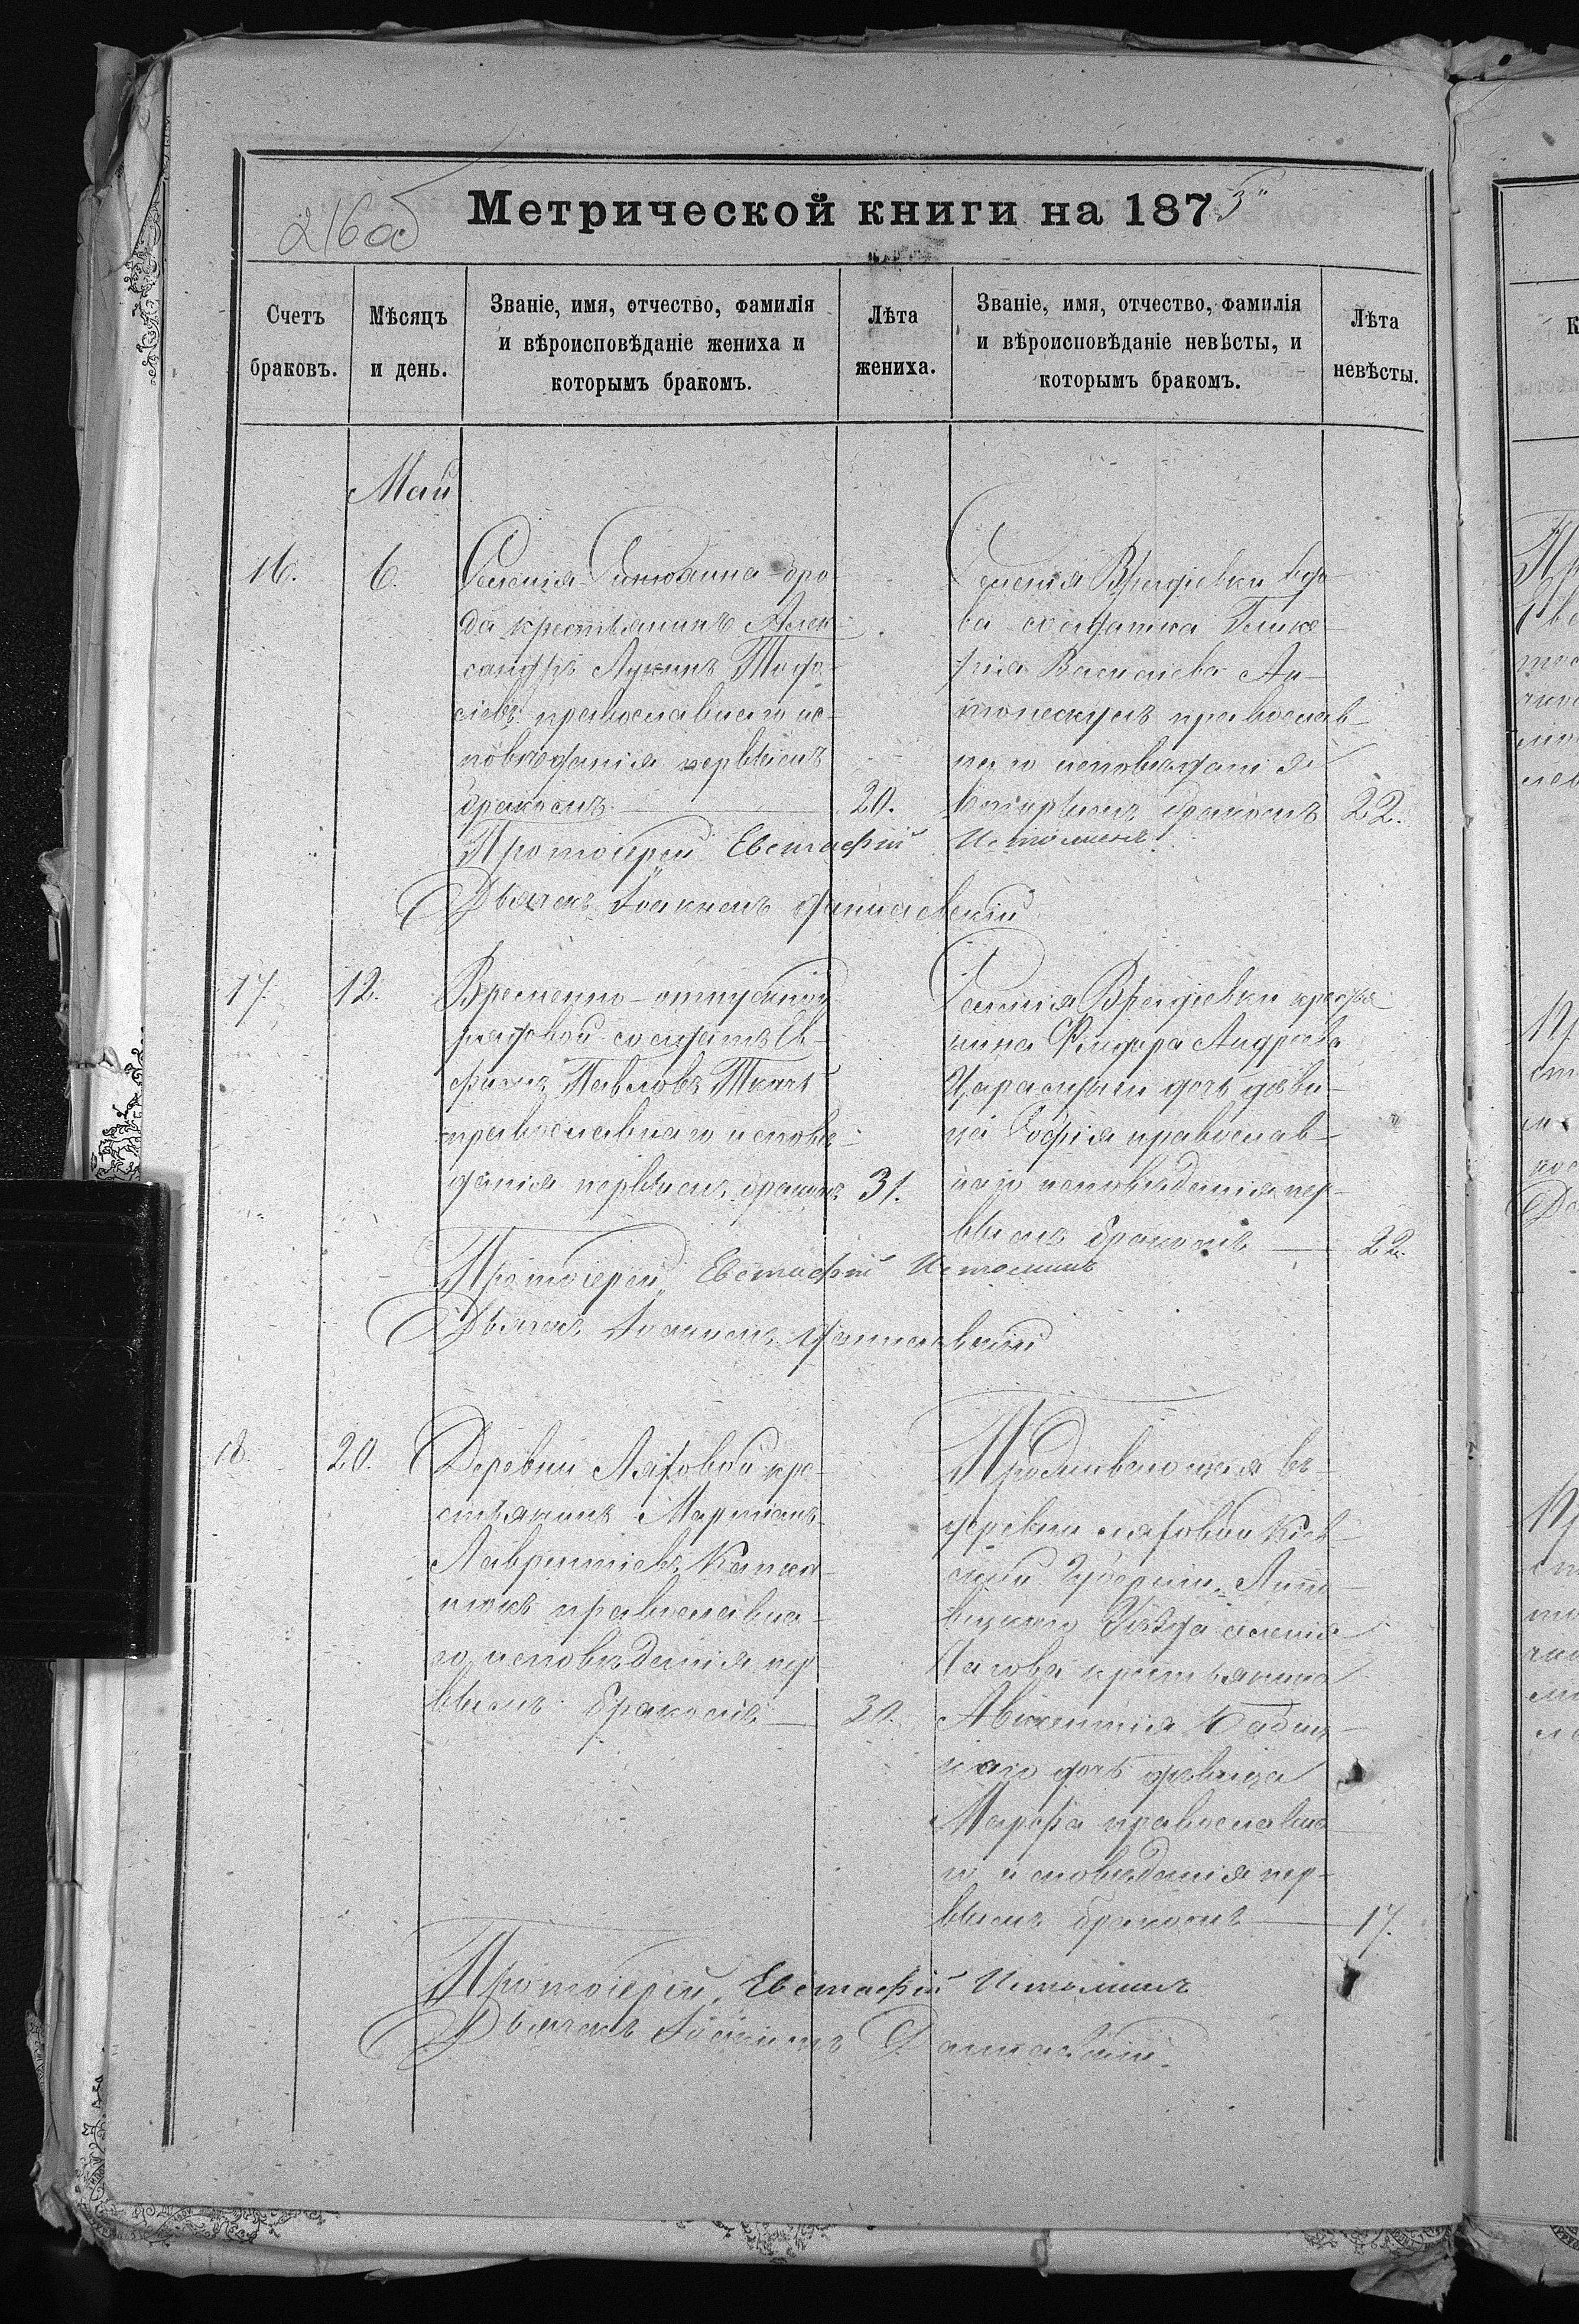 216об
Метрической книги на 1875"
Счетъ браковъ.
Мѣсяцъ и день.
Званіе, имя, отчество, фамилія
и вѣроисповѣданіе жениха и
которымъ бракомъ.
Лѣта жениха.
Званіе, имя, отчество, фамилія
и вѣроисповѣданіе невѣсты, и
которымъ бракомъ.
Лѣта невѣсты.
Май
16.
6.
Селенія бро-
да крестьянинъ Алек-
сандръ Лукинъ
православнаго ис-
повѣданія первымъ
бракомъ
20.
Селенія Врадіевки вдо-
ва солдатка Глике-
рія Василіева Ан-
тонескулъ православ-
наго исповѣданія
вторымъ бракомъ
22.
Протоіерей Евстафій Истоминъ
Дьячекъ Іоакимъ
17.
12.
Временно-отпускной
рядовой солдатъ Ев-
фимъ Павловъ Ткачъ
православнаго исповѣ-
данія первымъ бракомъ
31.
Селенія Врадіевки крестья
нина Андреева
дочь дѣви-
ца Софія православ-
наго исповѣданія пер-
вымъ бракомъ
22.
Протоіерей Евстафій Истоминъ
Дьячекъ Іоакимъ
18.
20.
Деревни Ляховой кре-
стьянинъ
Лаврентіевъ
православна-
го исповѣданія пер-
вымъ бракомъ
30.
Проживающая въ
деревни Ляховой Кіев-
ской Губерніи, Липо-
вецкаго Уѣзда селенія
крестьянина
Авксентія
каго дочь дѣвица
Марфа православна
го исповѣданія пер-
вымъ бракомъ
17.
Протоіерей Евстафій Истоминъ
Дьячекъ Іоакимъ